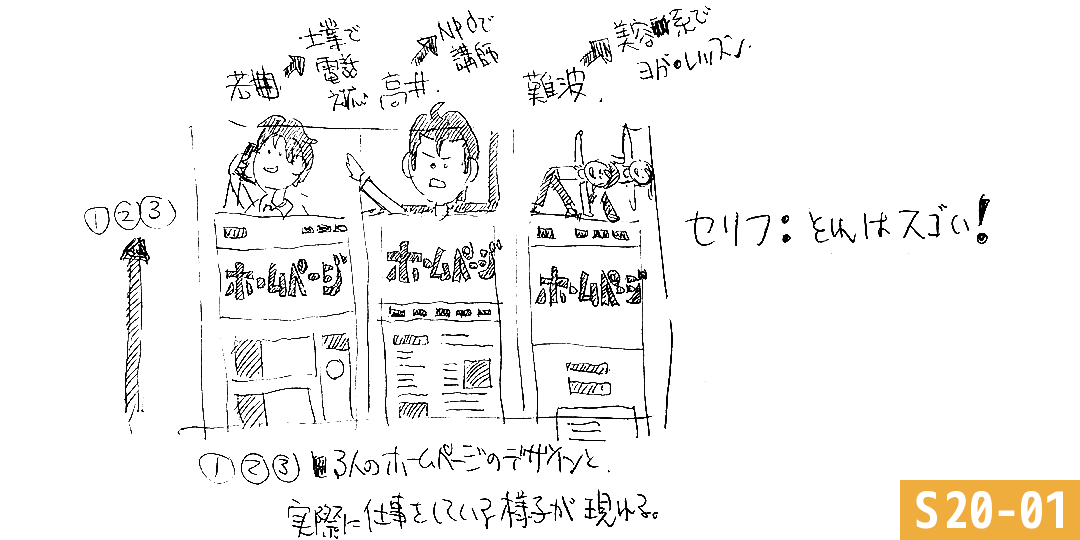 士業で
電話
若曲
NPOで
講師
高井.
美容系で
ヨガ・レッスン
難波.
①②③
ホームページ
ホームページ
ホームページ
セリフ:とれはスゴい!
①②③ 3人のホームページのデザインと、
実際に仕事をしている様子が現れる。
S20-01